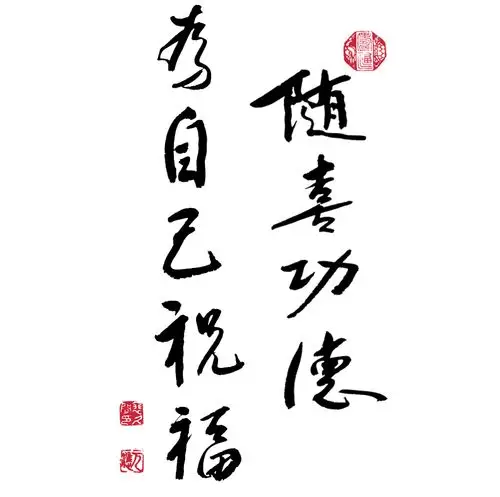 随喜功德
为自己祝福